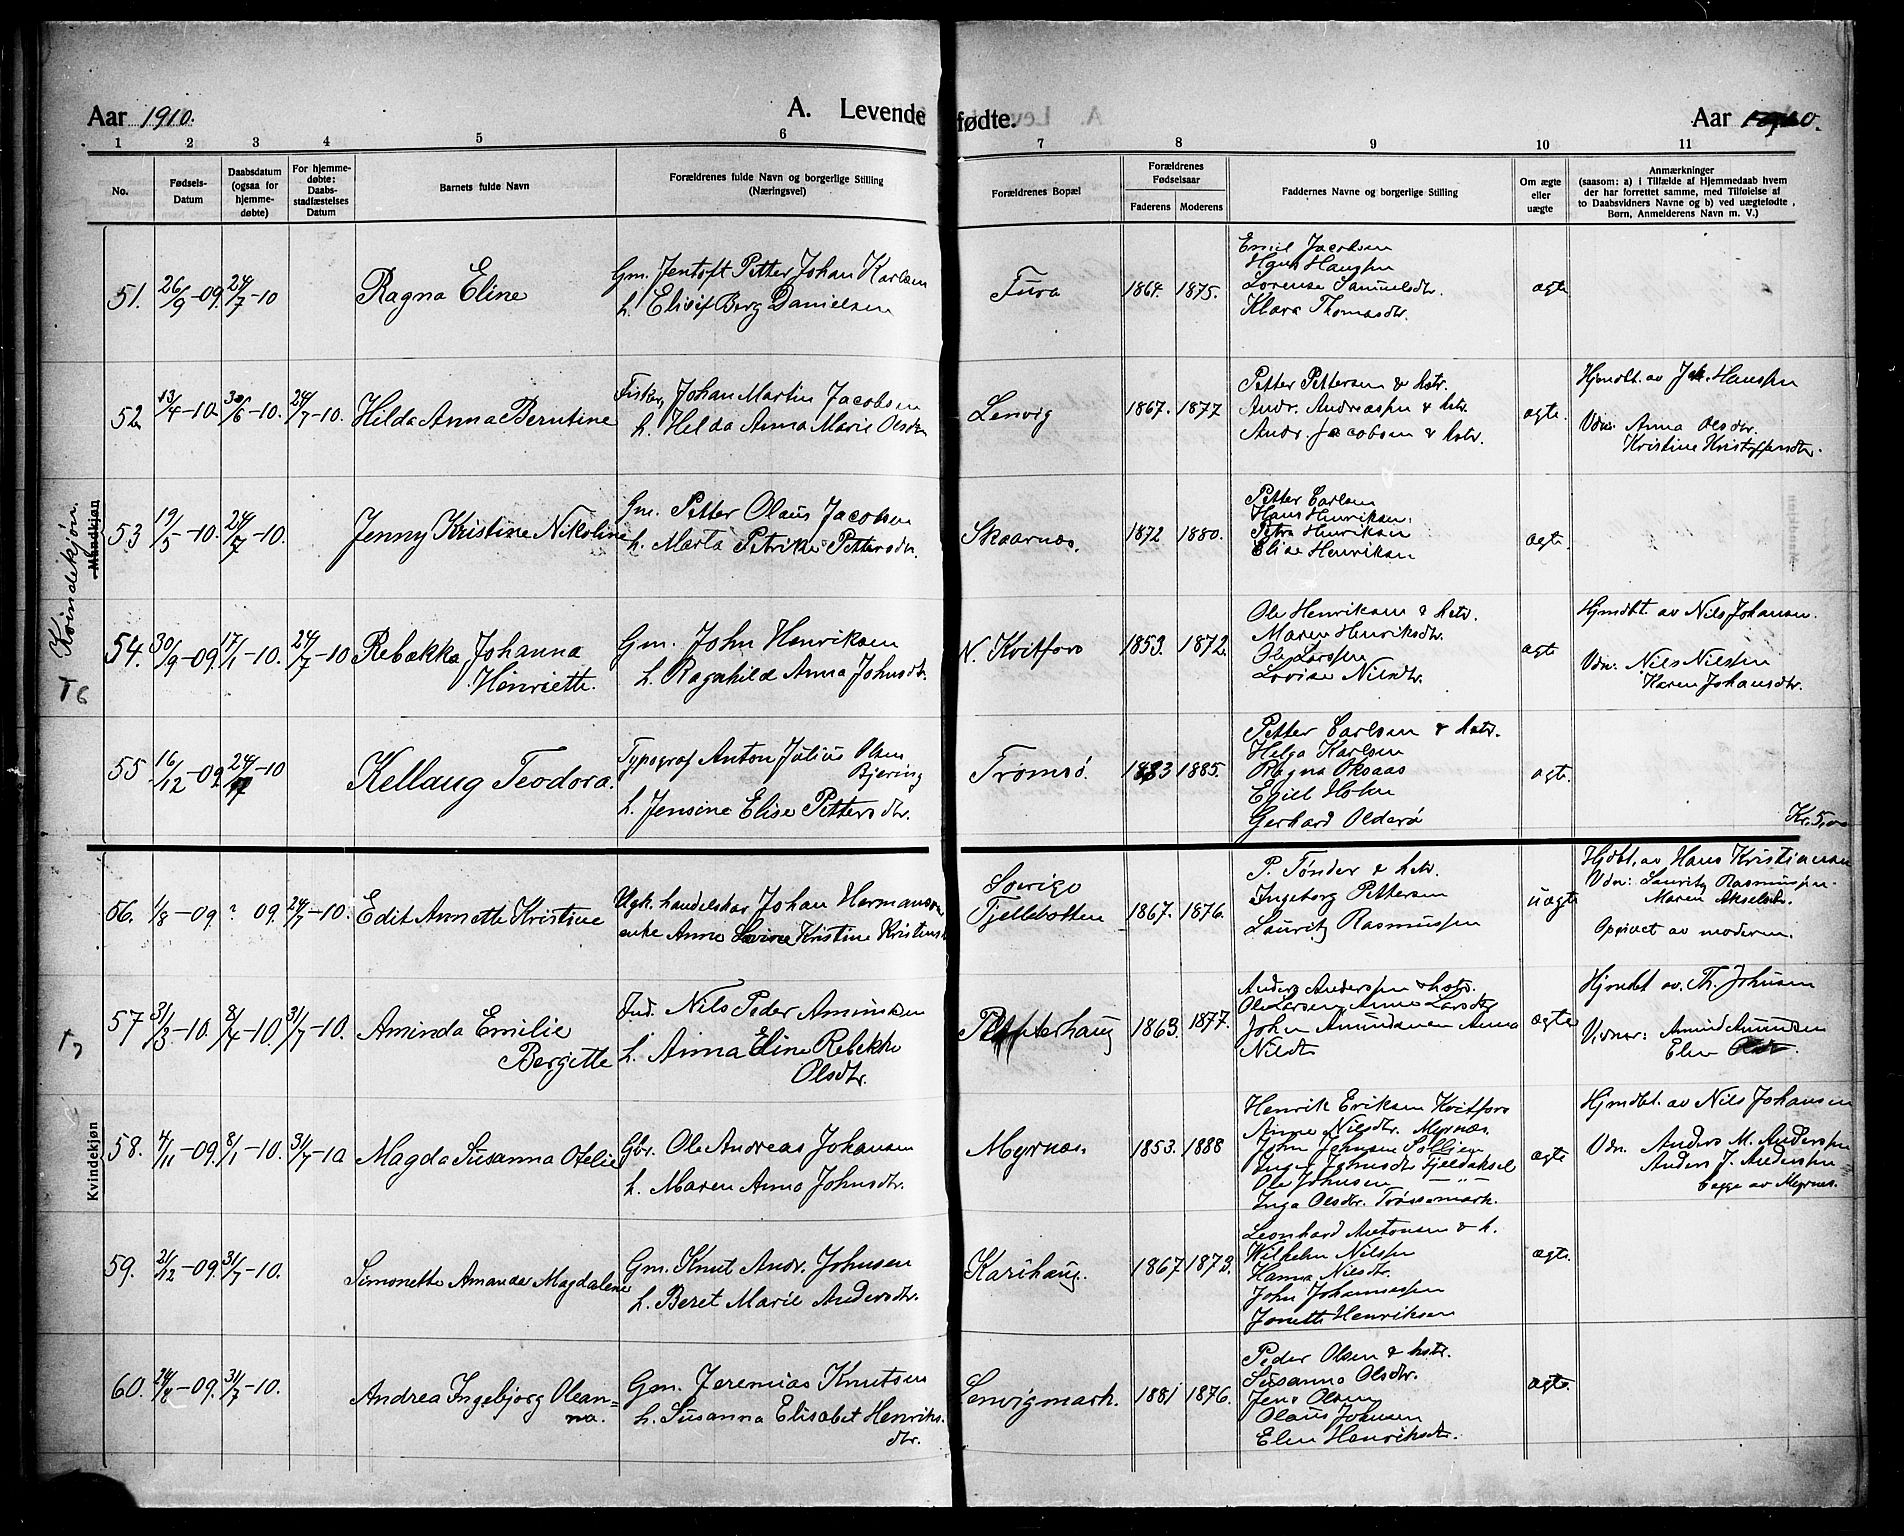 Aar 1910.
A. Levende fødte.
Aar 1910.
1 2 3 4 5 6 7 8 9 10 11
No.
Fødsels-
Datum
Daabsdatum
(ogsaa for
hjemme-
døbte)
For hjemme-
døbte:
Daabs-
stadfæstelses
Datum
Barnets fulde Navn
Forældrenes fulde Navn og borgerlige Stilling
(Næringsvei)
Forældrenes Bopæl
Forældrenes
Fødselsaar
Faderens Moderens
Faddernes Navne og borgerlige Stilling
Om ægte
eller
uægte
Anmærkninger
(saasom: a) i Tilfælde af Hjemmedaab hvem
der har forrettet samme, med Tilføielse af
to Daabsvidners Navne og b) ved uægtefødte
Børn, Anmelderens Navn m. V.)
Kvindekjøn.
Mandkjøn
51. 26/9-09. 24/7-10
Ragna Eline
Gm. Jentoft Petter Johan Karlsen
h. Elisif Berg Danielsen
Fura
1864. 1875.
Emil Jacobsen
Hans Hansen
Lorense Samuelsdtr.
Klara Thomasdtr.
ægte
52. 13/4-10. 30/6-10. 24/7-10.
Hilda Anna Berntine
Fisker Johan Martin Jacobsen
h. Hilda Anna Marie Olsdtr
Lenvig
1867. 1877
Petter Pettersen & hstr.
Andr. Andreassen & hstr.
Andr Jacobsen & hstr.
ægte.
Hjmdbt. av Joh. Hanssen
Vdn: Anna Olsdtr.
Kristine Kristoffersdtr.
53 19/5-10. 24/7-10.
Jenny Kristine Nikoline
Gm. Petter Olaus Jacobsen
h. Marta Petrikke Pettersdtr.
Skaarnes.
1872 1880.
Petter Carlsen
Hans Henriksen.
Petra Henriksen
Elise Henriksen
ægte.
54. 30/9-09. 17/1-10. 24/7-10
Rebekka Johanna
Henriette.
Gm. John Henriksen
h. Ragnhild Anna Johnsdtr.
N. Kvitfors
1853. 1872.
Ole Henriksen & hstr.
Maren Henriksdtr.
Ole Larssen
Lovise Nilsdtr.
ægte
Hjmdbt. av Nils Johansen.
Vdn: Nils Nilssen
Karen Johansdtr.
55 16/12-09. 24/7-10
Kellaug Teodora.
Typograf Anton Julius Olsen
Bjering
h. Jensine Elise Pettersdtr.
Tromsø.
1883 1885.
Petter Carlsen & hstr.
Helga Karlsen
Ragna Oksaas
Egill Holm
Gerhard Olderø
ægte.
Kr. 5,00
Kvindekjøn
56. 1/8-09. ? 09. 24/7-10.
Edit Annette Kristine
Ugk. handelskar Johan Hermansen
enke Anna Lovise Kristine Kristensd.
Sverige
Fjellbotten
1867. 1876.
P. Tønder & hstr.
Ingeborg Pettersen
Lauritz Rasmussen
uægte
Hjdbt. av Hans Kristiansen
Vdn: Lauritz Rasmussen.
Maren Akselsdtr.
Opgivet av moderen.
57 31/3-10. 8/4-10. 31/7-10.
Aminda Emilie
Bergette
Ind. Nils Peder Amundsen
h. Anna Eline Rebekka
Olsdtr.
1863. 1877.
Anders Anderssen & hstr.
Ole Larsen Anna Larsdtr
John Amundsen Anna
Nilsdtr
ægte
Hjmdbt av. Th. Johnsen
Vidner: Amund Amundsen
Elen Olsdtr.
58. 4/11-09. 8/1-10. 31/7-10
Magda Susanna Ofelie
Gbr. Ole Andreas Johansen
h. Maren Anna Johnsdtr.
Myrnes.
1853. 1888
Henrik Eriksen Kvitfors
Anne Nilsdtr. Myrnes.
John Johnsen Sollien
Inger Johnsdtr Fjeldaksel
Ole Johnsen — " —
Inga Olsdtr. Trøssemark.
ægte
Hjmdbt. av Nils Johansen
Vdn. Anders M. Anderssen
Anders J. Anderssen
begge av Myrnes.
59. 21/12-09. 31/7-10.
Simonette Amanda Magdalene
Gm. Knut Andr. Johnsen
h. Beret Marie Andersdtr.
Karihaug.
1867 1873.
Leonhard Antonsen & h.
Wilhelm Nilssen
Hanna Nilsdtr.
John Johannessen
Jonette Henriksen
ægte.
60. 24/8-09. 31/7-10.
Andrea Ingebjørg Olean=
na.
Gm. Jeremias Knutsen
h. Susanna Elisabet Henriks
dtr.
Lenvigmark.
1881 1876.
Peder Olsen & hstr.
Susanna Olsdtr.
Jens Olsen
Olaus Johnsen
Elen Henriksdtr.
ægte.